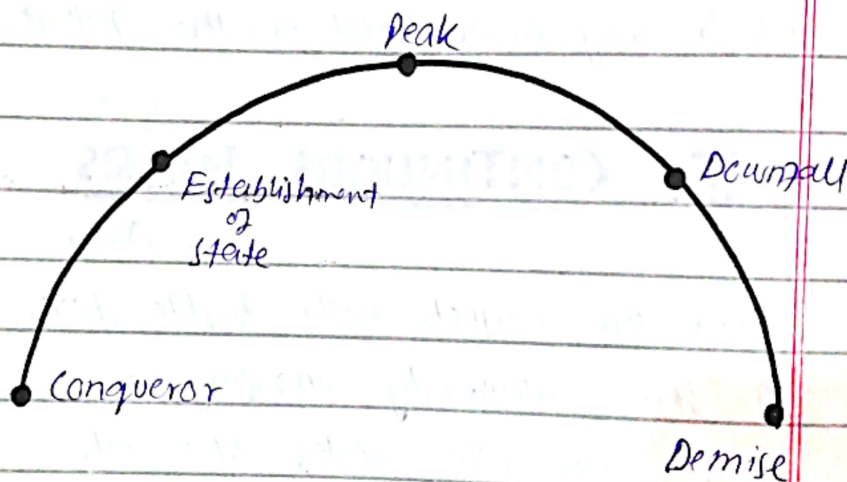 Peak
Establishment
of
state
Downfall
Conqueror
Demise